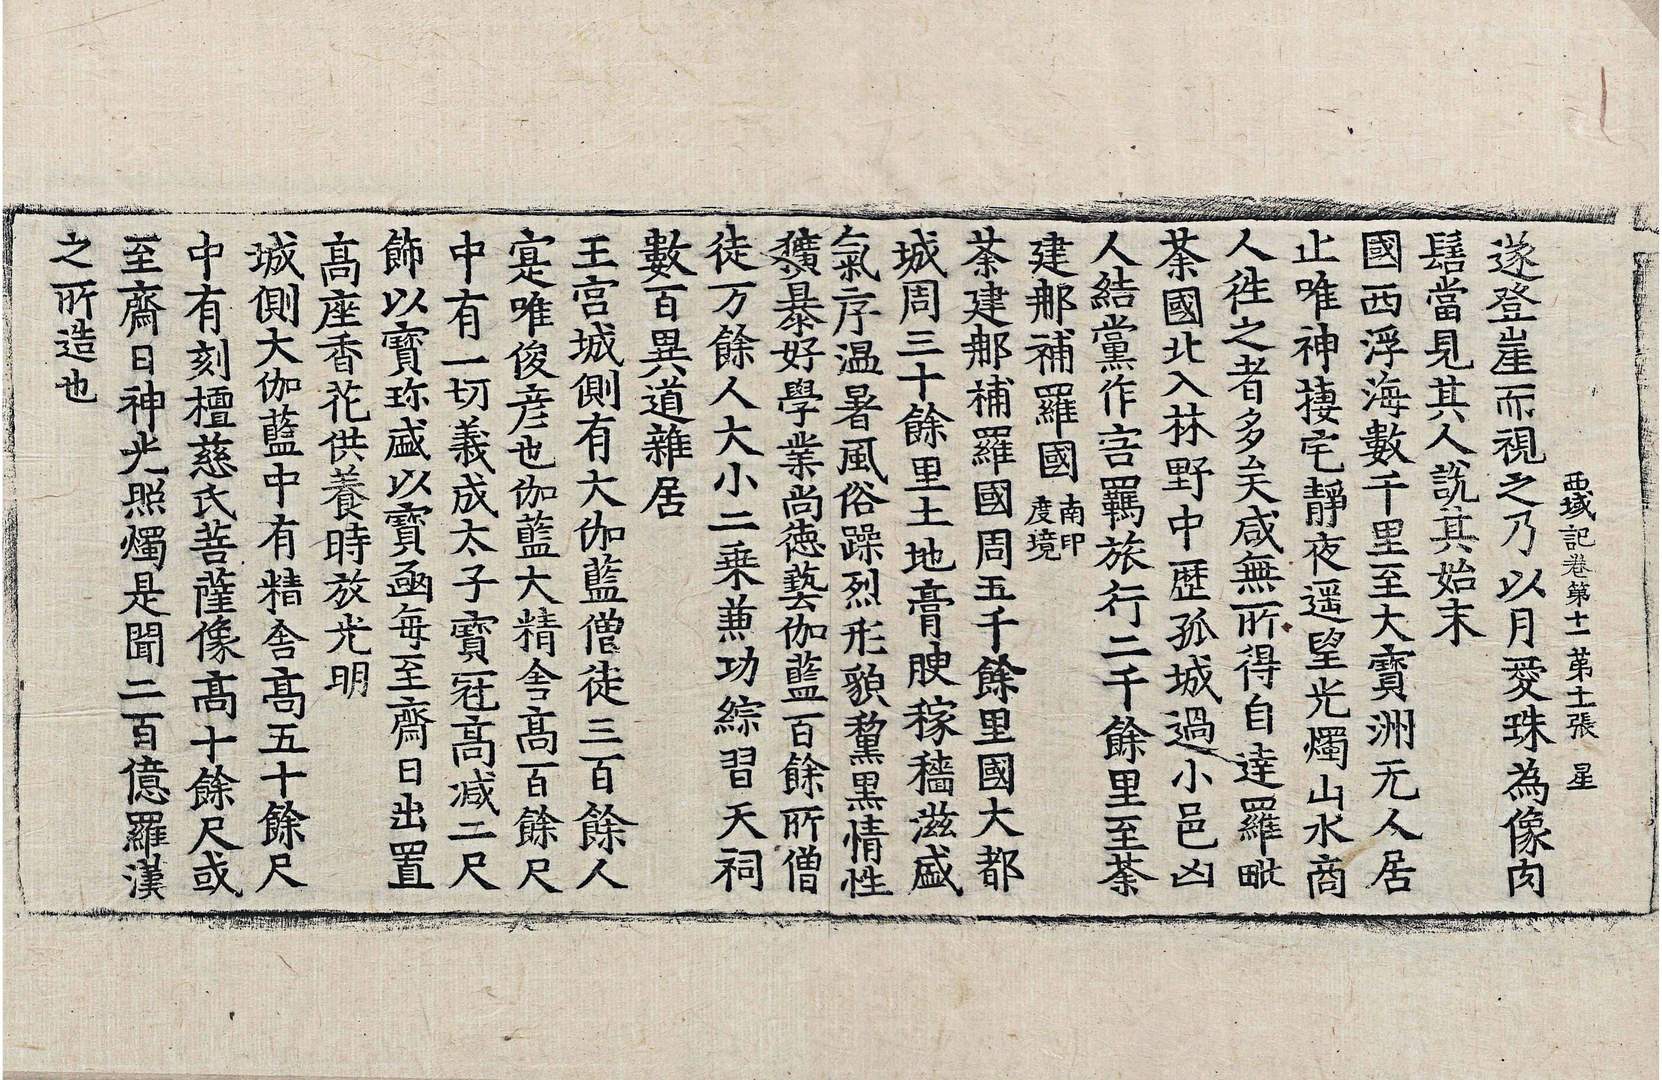 西域記卷第十一 第十二張 星
遂登崖而視之乃以月愛珠為像肉
髻當見其人說其始末
國西浮海數千里至大寶洲无人居
止唯神捿宅靜夜遥望光燭山水商
人往之者多矣咸無所得自達羅毗
荼國北入林野中歷孤城過小邑凶
人結黨作害羈旅行二千餘里至荼
建那補羅國南印度境
荼建那補羅國周五千餘里國大都
城周三十餘里土地膏腴稼穡滋盛
氣序温暑風俗躁烈形貌黧黑情性
獷暴好學業尚德藝伽藍百餘所僧
徒万餘人大小二乘兼功綜習天祠
數百異道雜居
王宮城側有大伽藍僧徒三百餘人
寔唯俊彥也伽藍大精舍高百餘尺
中有一切義成太子寶冠高減二尺
飾以寶珎盛以寶函每至齋日出置
高座香花供養時放光明
城側大伽藍中有精舍高五十餘尺
中有刻檀慈氏菩薩像高十餘尺或
至齋日神光照燭是聞二百億羅漢
之所造也